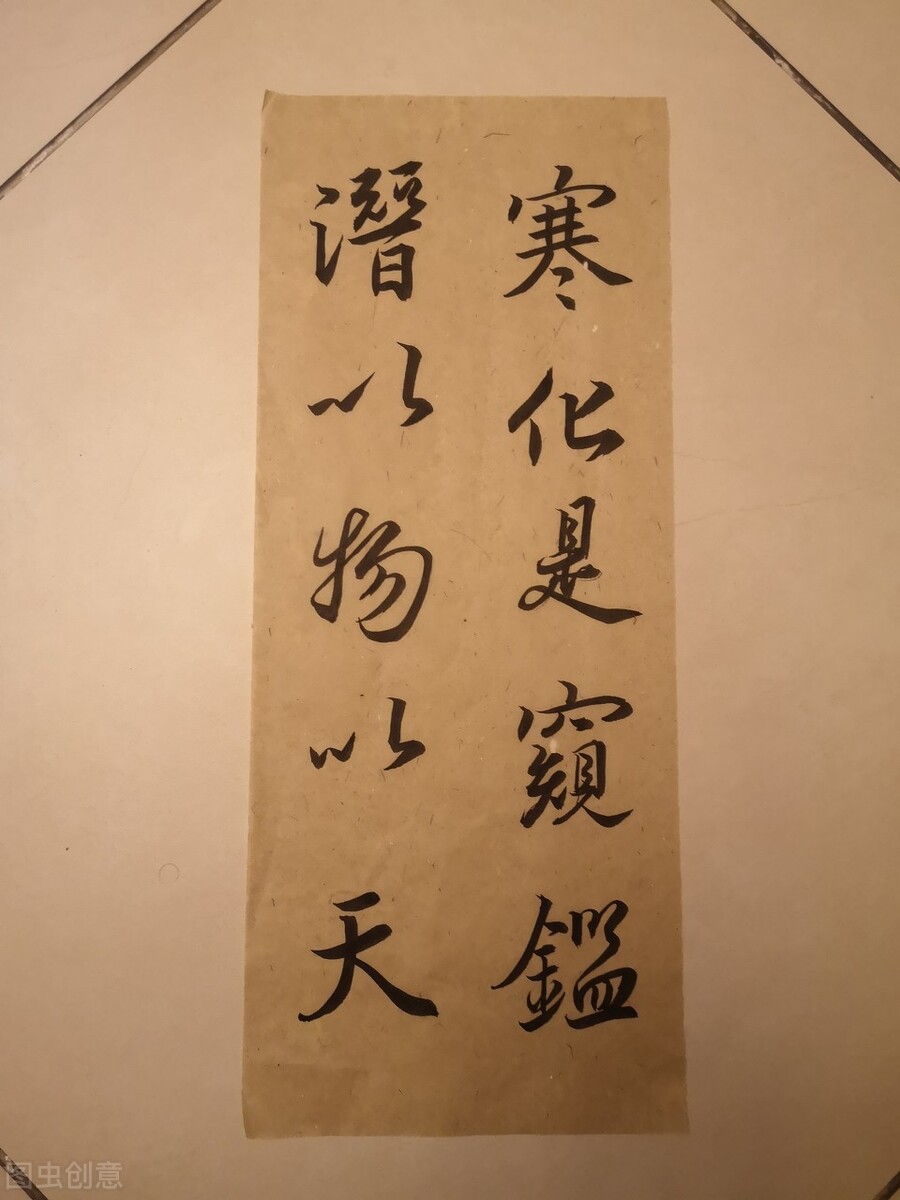 寒化是窺鑑
潛以物以天
图虫创意